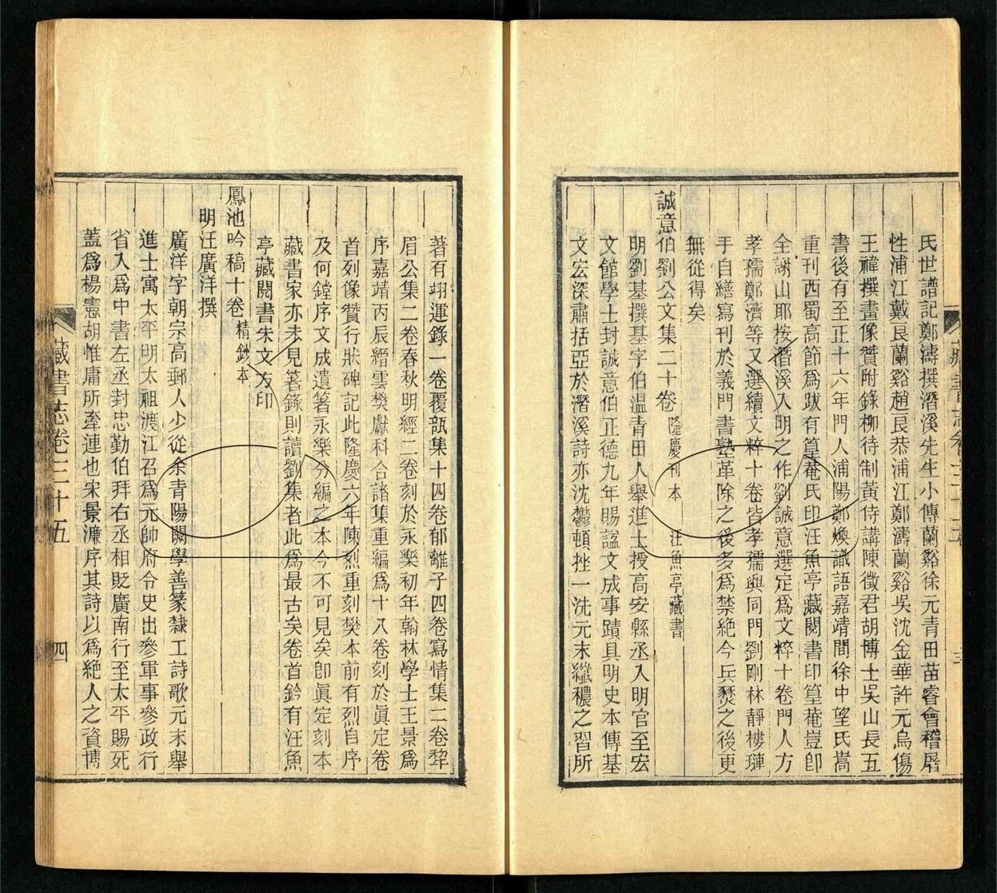 氏世譜記鄭濤撰潛溪先生小傳蘭谿徐元青田苗睿會稽屠
性浦江戴良蘭谿趙良恭浦江鄭濤蘭谿吳沈金華許元烏傷
王禕撰畫像贊附錄柳待制黃侍講陳徵君胡博士吳山長五
書後有至正十六年門人浦陽鄭煥識語嘉靖間徐中望氏嵩
重刊西蜀高節為跋有篁菴氏印汪魚亭藏閱書印篁菴豈卽
全謝山耶按潛溪入明之作劉誠意選定為文粹十卷門人方
孝孺鄭濟等又選續文粹十卷皆孝孺與同門劉剛林靜樓璉
手自繕寫刊於義門書塾革除之後多為禁絕今兵燹之後更
無從得矣
誠意伯劉公文集二十卷 隆慶刊本 汪魚亭藏書
明劉基撰基字伯温青田人舉進士授高安縣丞入明官至宏
文館學士封誠意伯正德九年賜謚文成事蹟具明史本傳基
文宏深肅括亞於潛溪詩亦沈鬱頓挫一洗元末纖穠之習所
著有翊運錄一卷覆瓿集十四卷郁離子四卷寫情集二卷犂
眉公集二卷春秋明經二卷刻於永樂初年翰林學士王景為
序嘉靖丙辰縉雲樊獻科合諸集重編為十八卷刻於眞定卷
首列像贊行狀碑記此隆慶六年陳烈重刻樊本前有烈自序
及何鏜序文成遺箸永樂分編之本今不可見矣卽眞定刻本
藏書家亦未見箸錄則讀劉集者此為最古矣卷首鈐有汪魚
亭藏閱書朱文方印
鳳池吟稿十卷 精鈔本
明汪廣洋撰
廣洋字朝宗高郵人少從余青陽闕學善篆隸工詩歌元末舉
進士寓太平明太祖渡江召為元帥府令史出參軍事參政行
省入為中書左丞封忠勤伯拜右丞相貶廣南行至太平賜死
蓋為楊憲胡惟庸所牽連也宋景濂序其詩以為絕人之資博
藏書志卷三十五
四